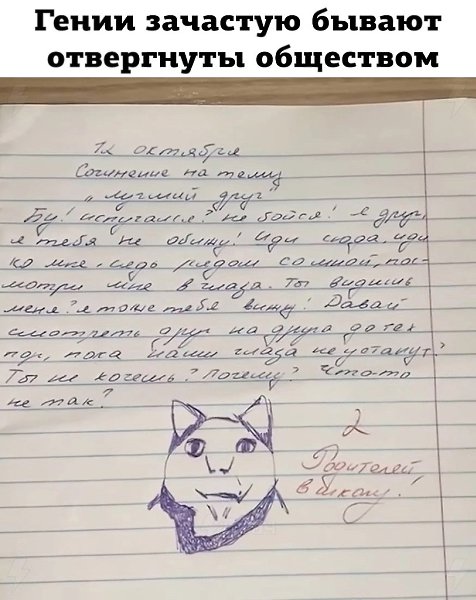 Гении зачастую бывают
отвергнуты обществом
12 октября
Сочинение на тему
"лучший друг"
Бу! испугался? не бойся! я друг,
я тебя не обижу! иди сюда, иди
ко мне, сядь рядом со мной, пос-
мотри мне в глаза. Ты видишь
меня? я тоже тебя вижу! Давай
смотреть друг на друга до тех
пор, пока наши глаза не устанут?
Ты не хочешь? Почему? Что-то
не так?
2
Родителей
в школу!